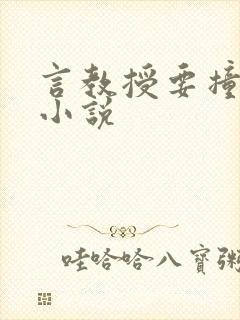 言教授要撞
小說
哇哈哈八寶粥